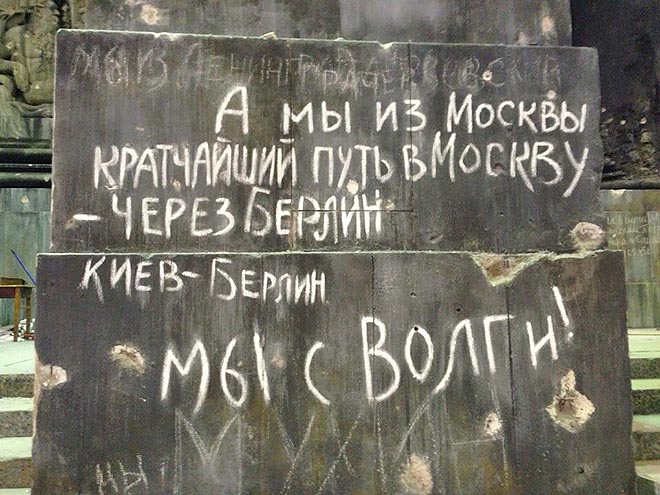 МЫ ИЗ ЛЕНИНГРАДА
А МЫ ИЗ МОСКВЫ
КРАТЧАЙШИЙ ПУТЬ В МОСКВУ
– ЧЕРЕЗ БЕРЛИН
КИЕВ-БЕРЛИН
МЫ С ВОЛГИ!
МЫ